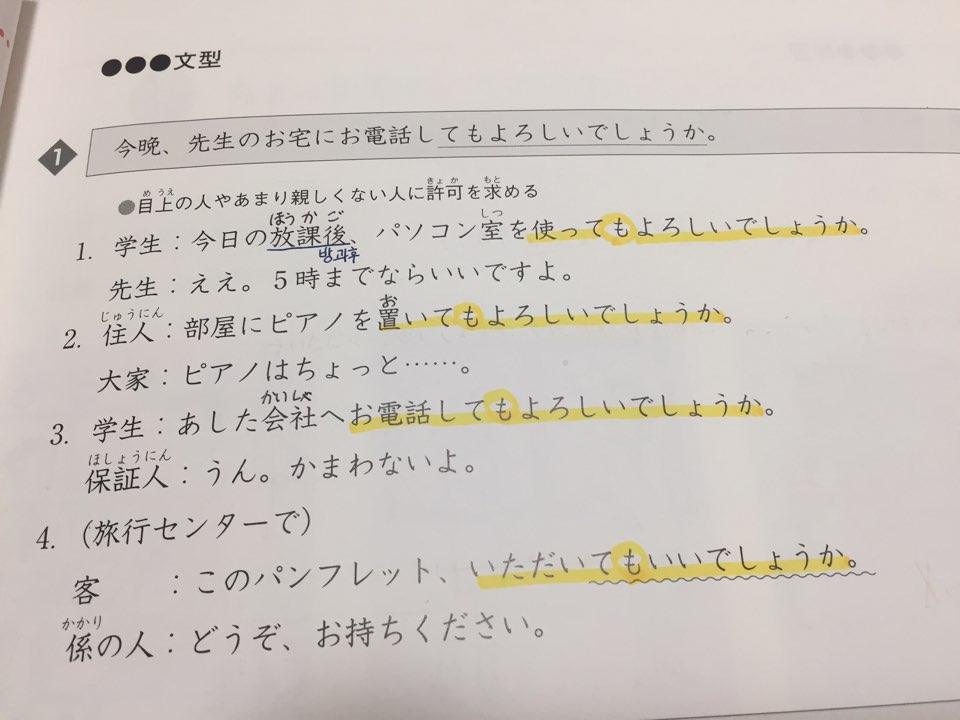 ●●●文型
1 今晩、先生のお宅にお電話してもよろしいでしょうか。
めうえ きょか もと
●目上の人やあまり親しくない人に許可を求める
ほうかご しつ
1. 学生：今日の放課後、パソコン室を使ってもよろしいでしょうか。
방과후
先生：ええ。5時までならいいですよ。
じゅうにん お
2. 住人：部屋にピアノを置いてもよろしいでしょうか。
大家：ピアノはちょっと……。
かいしゃ
3. 学生：あした会社へお電話してもよろしいでしょうか。
ほしょうにん
保証人：うん。かまわないよ。
4. （旅行センターで）
客　　：このパンフレット、いただいてもいいでしょうか。
かかり
係の人：どうぞ、お持ちください。